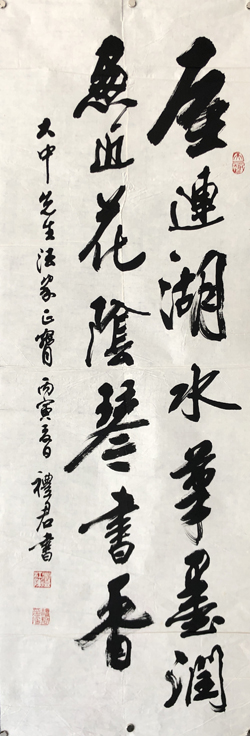 屋連湖水筆墨潤
窗近花陰琴書香
大中先生法家正 丙寅 日 禮君書